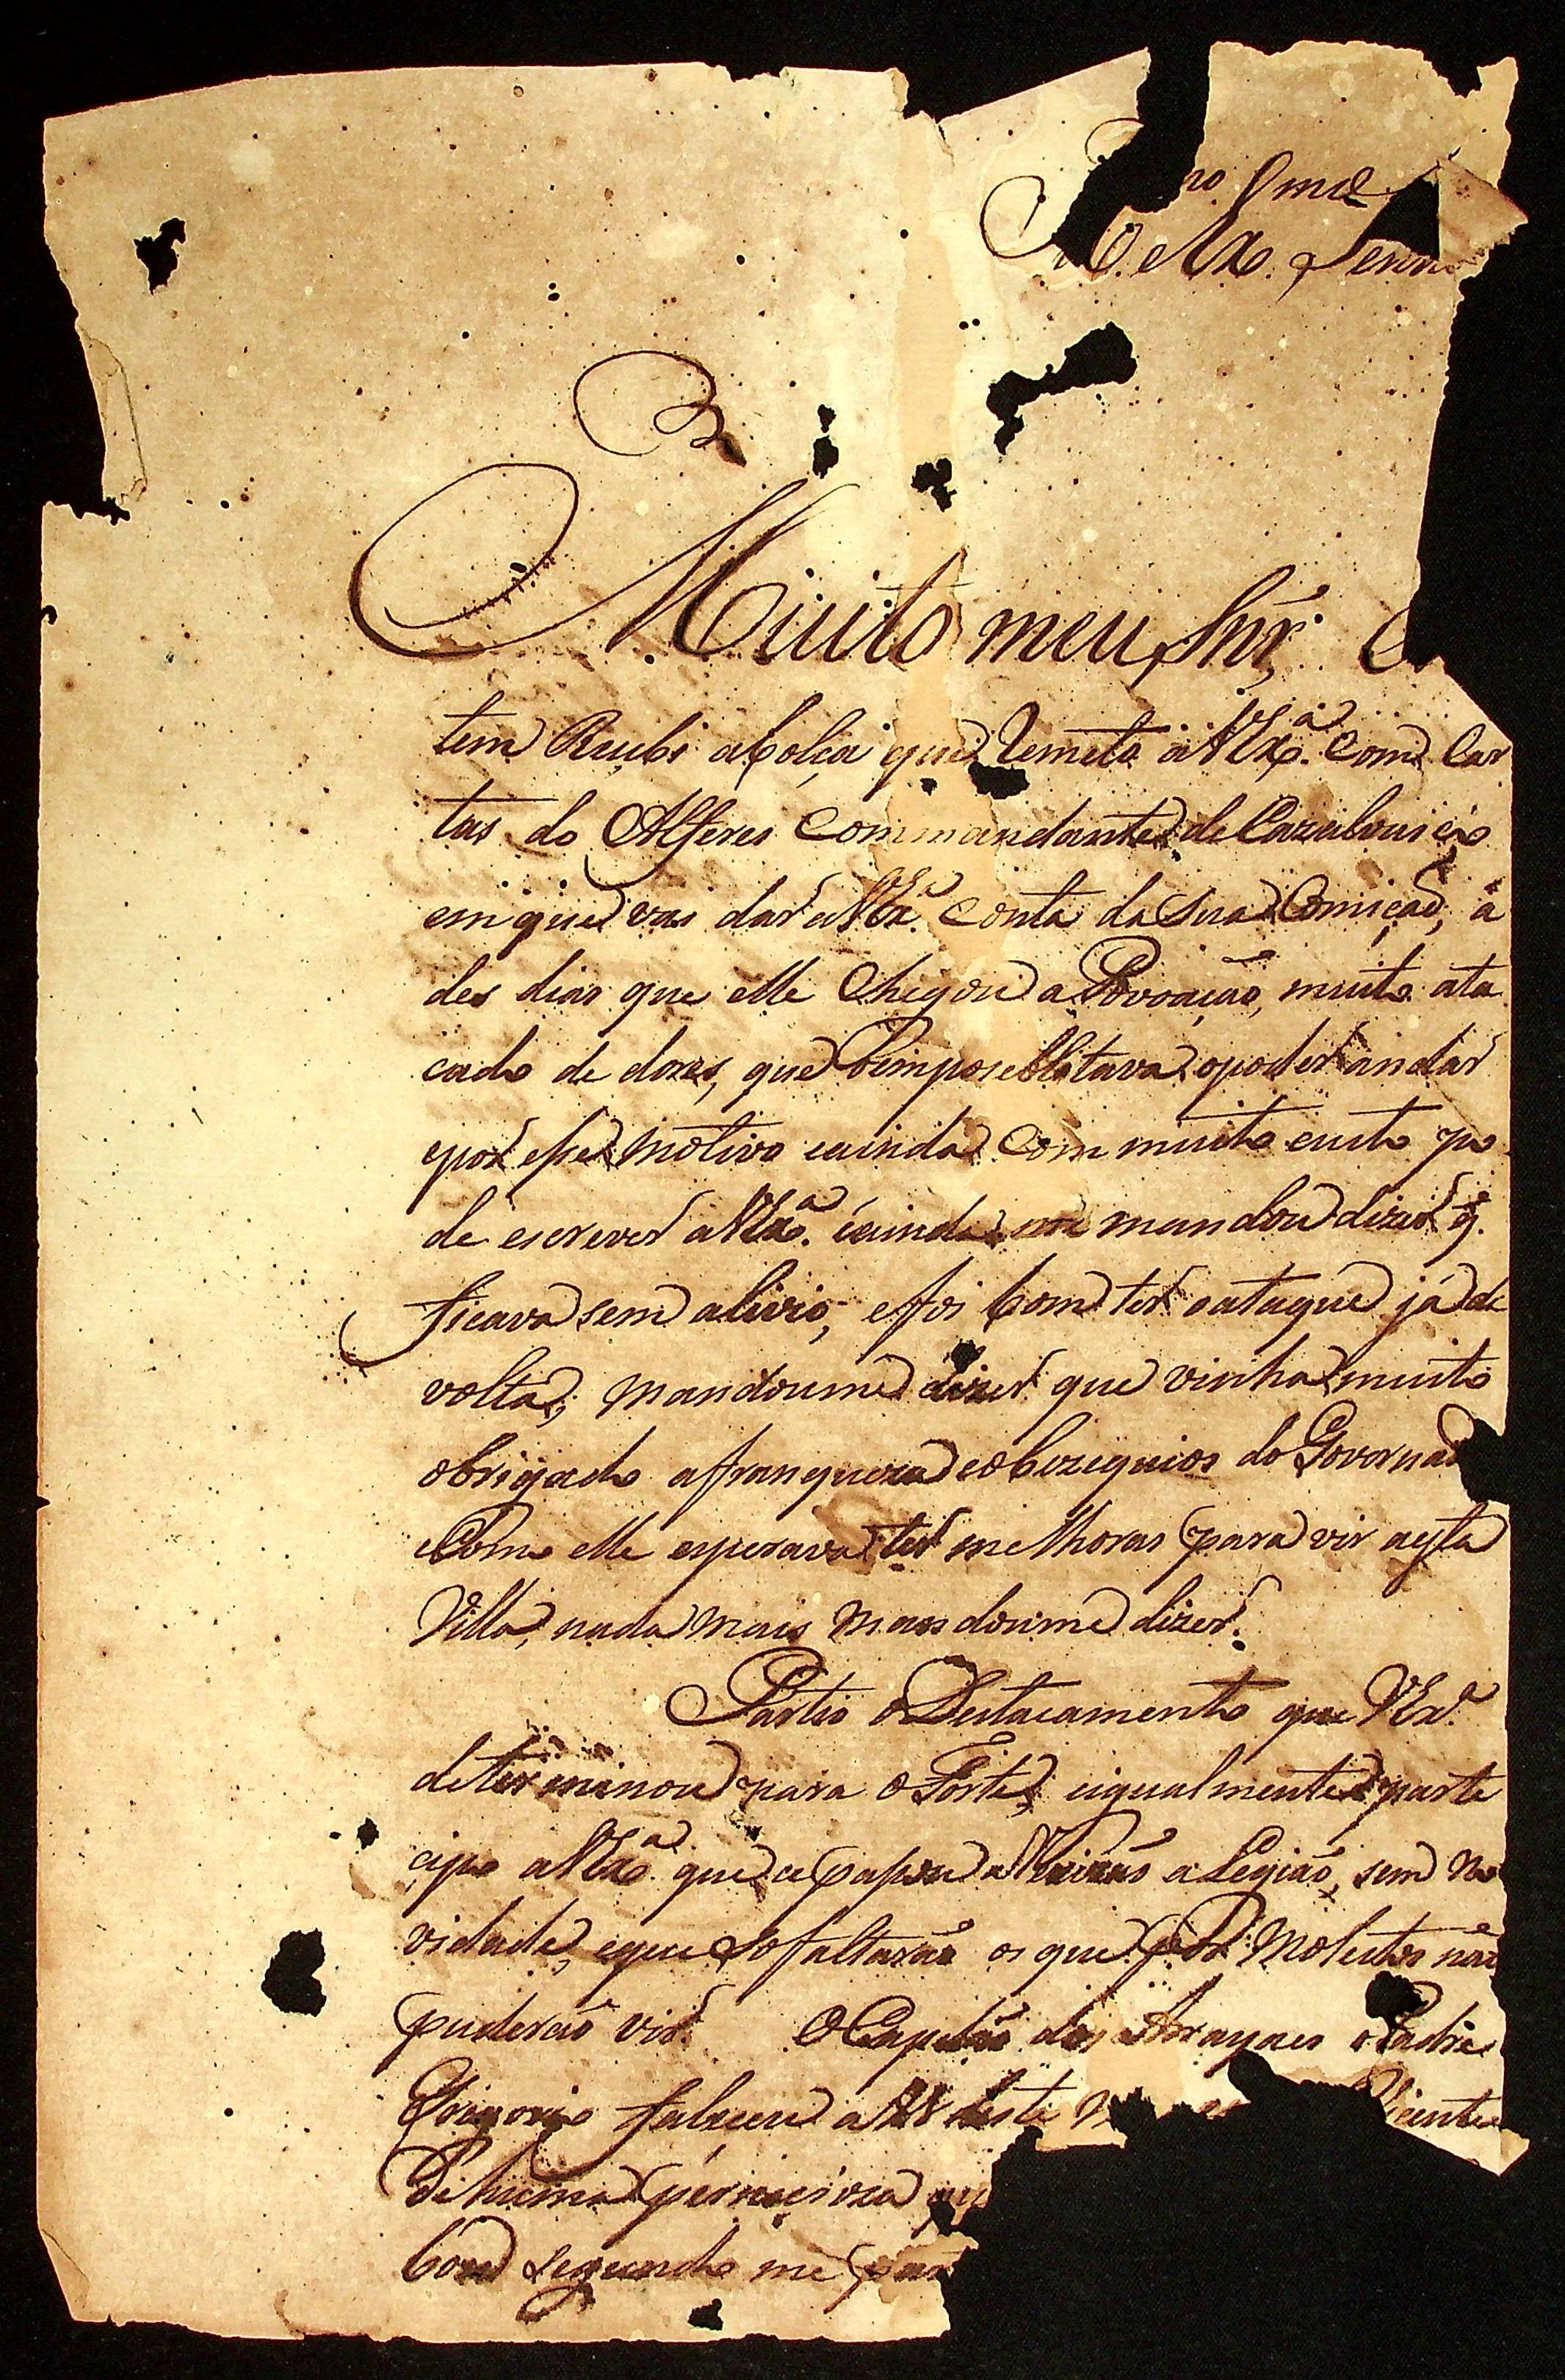 no Snr
Muito meu Snr
tem Recebi abolça que Remeto a VExª. com Car
tas do Alferes Commandante de
em que vai dar a VExª. Conta da Sua Comição, a
des dias que elle Chegou a Povoação, muito ata
cado de dores, que o poder andar
epor esse motivo eainda Com muito custo po
de escrever a VExª. eainda me mandou dizer q̃.
ficava sem alivio, efoi bom ter oataque já de
volta, mandoume dizer que vinha muito
obrigado afranqueza eobzequios do Governad
eComo elle esperava ter melhoras para vir aesta
Villa, nada mais mandoume dizer.
Partio o Destacamento que VExª.
determinou para o Forte, eigualmente parte
cipo a VExª. que se passou a a Legião, sem no
vidade, eque só faltarão os que por Molestos não
puderão vir. O Capelão dos Arrayaes o Padre
Gregorio faleceu a deste
De huma pernicioza
bou segundo me par